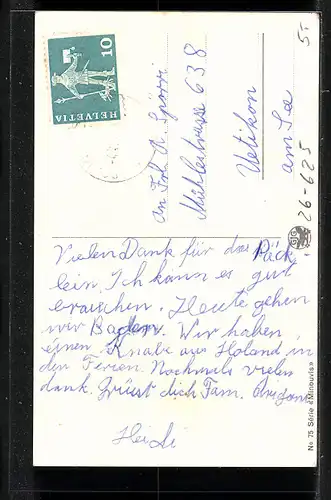 HELVETIA
10
5.-
An Frl. A. Spörri
Mühlestrasse 638
Uetikon
am See
26-625
Vielen Dank für das Päck
lein. Ich kann es gut
brauchen. Heute gehen
wir Baden. Wir haben
einen Knabe aus Holand in
den Ferien. Nochmals vielen
dank. Grüsst dich Fam.
Heidi
No 75 Serie «Mineuvis»